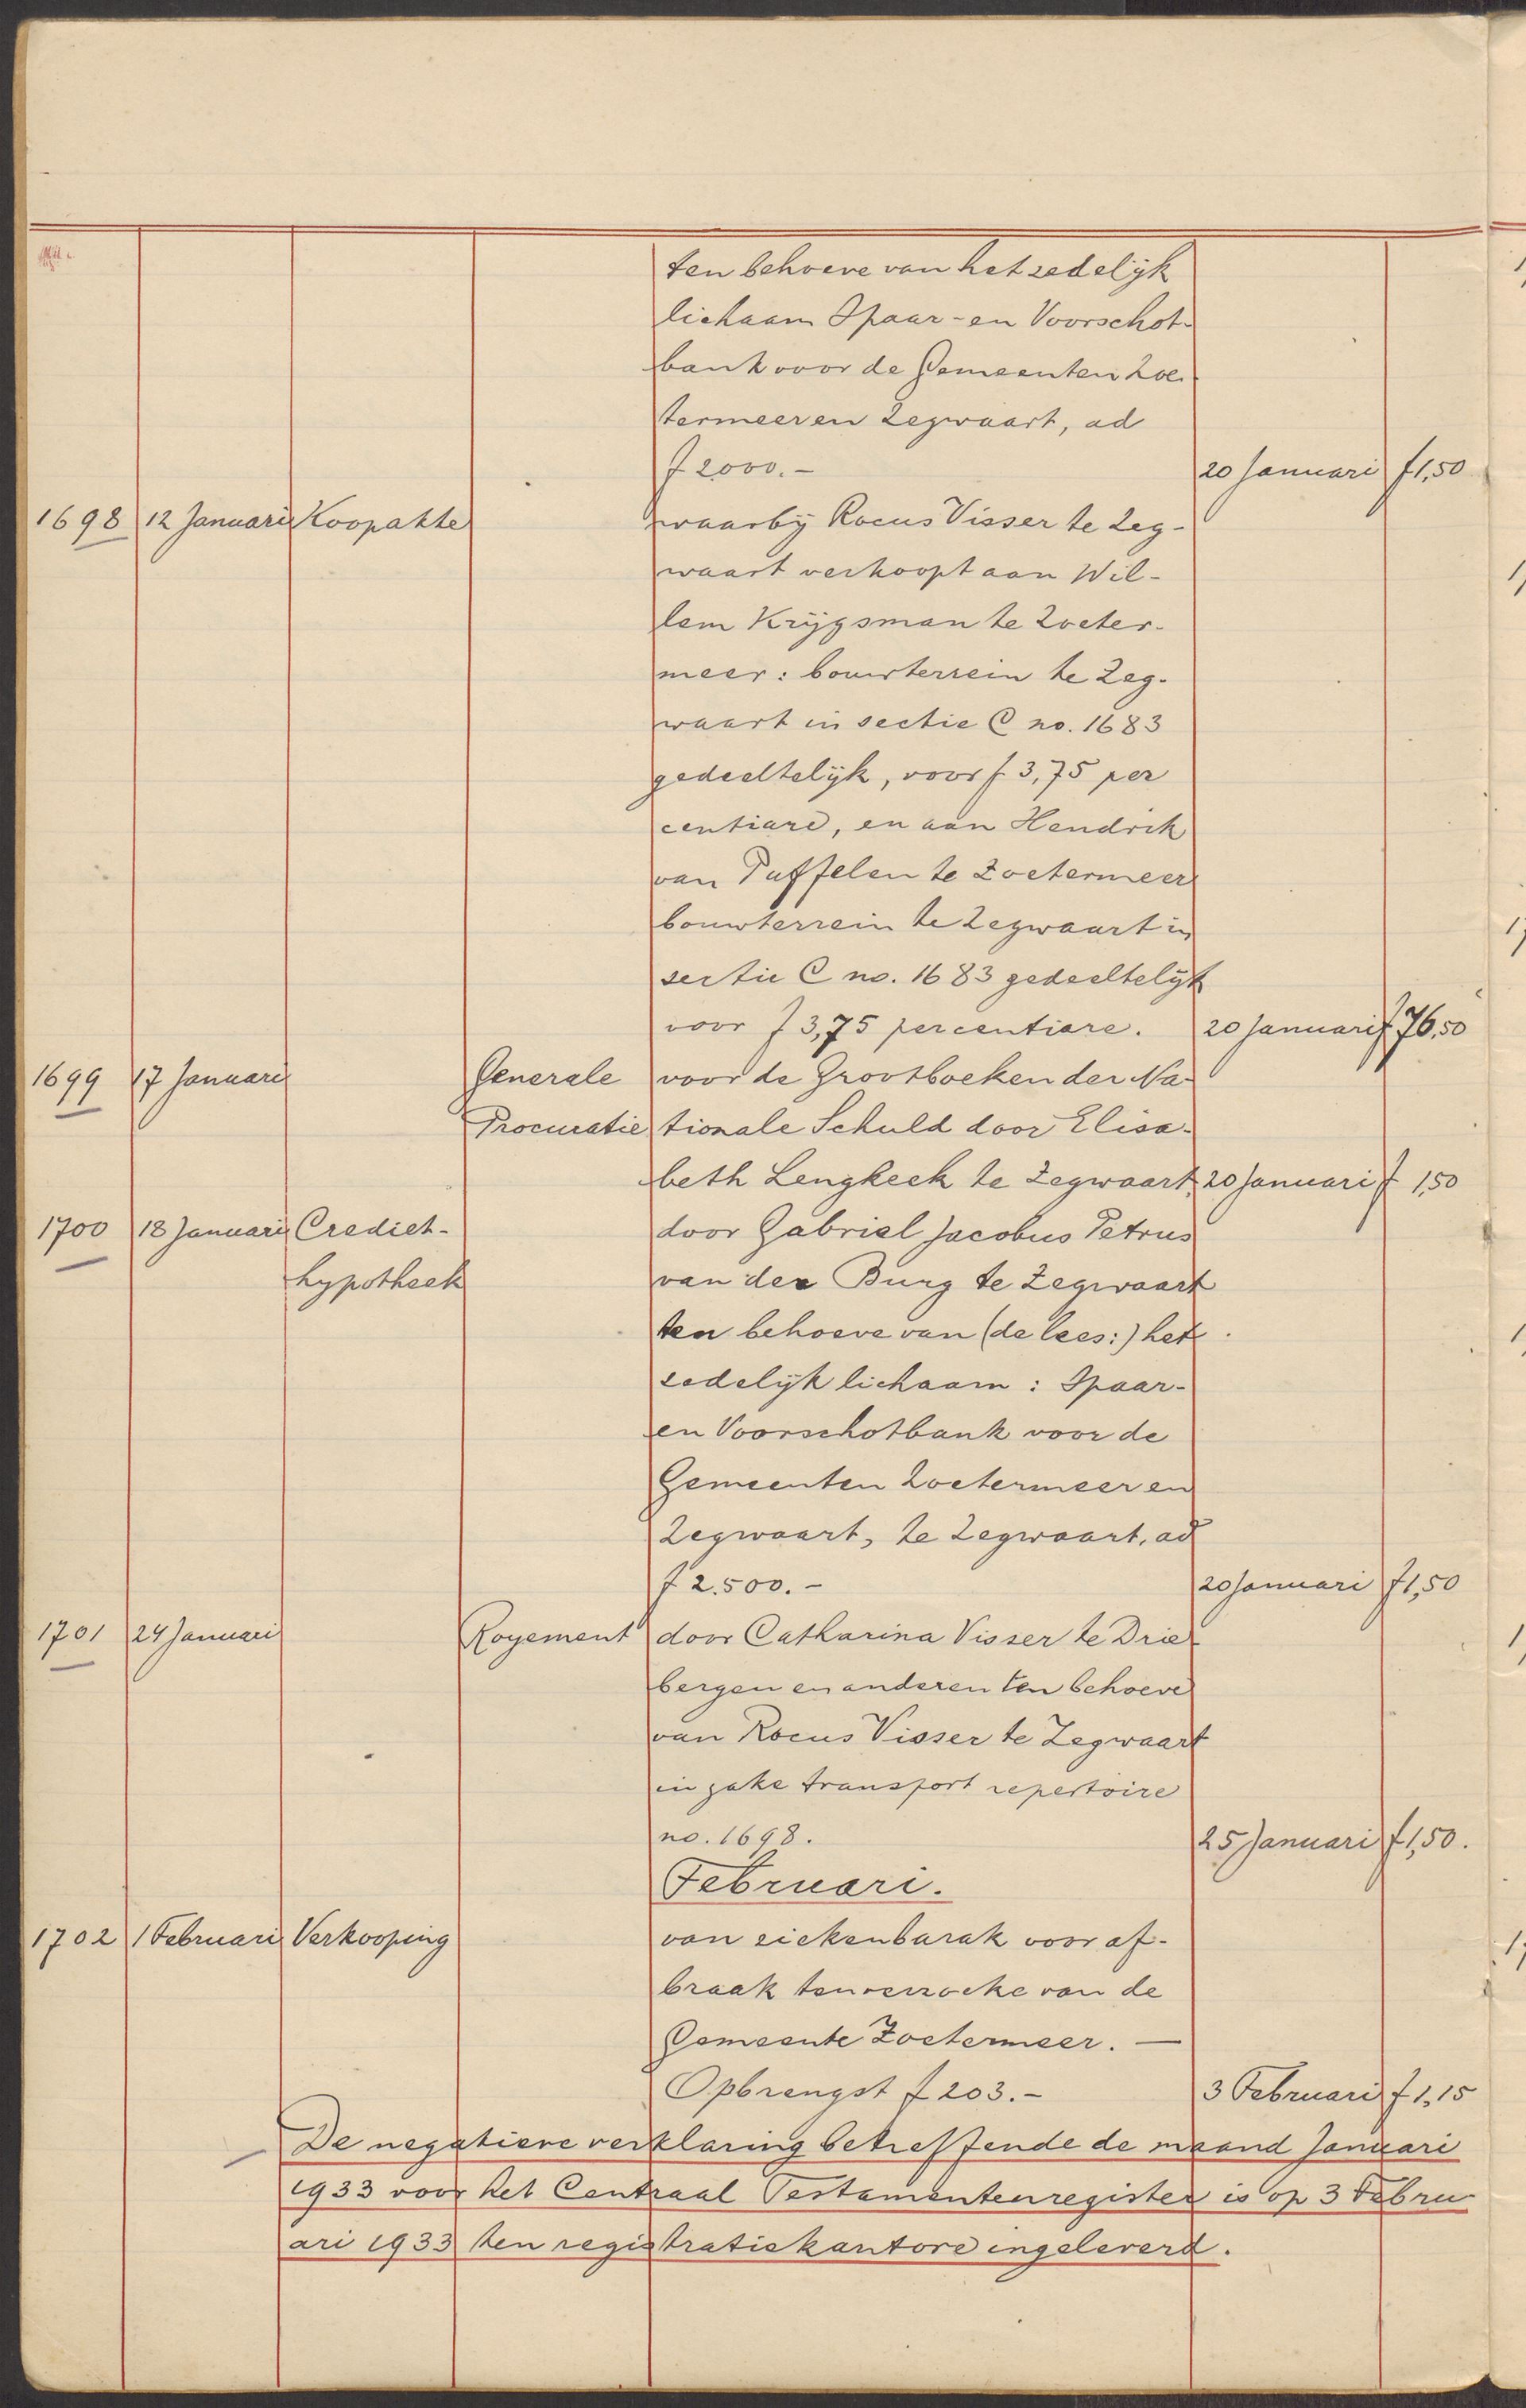 ten behoeve van het zedelijk
lichaam Spaar- en Voorschot-
bank voor de Gemeenten Zoe-
termeer en Zegwaart, ad
f 2000.- 20 Januari f 1,50
1698 12 Januari Koopakte waarbij Rocus Visser te Zeg-
waart verkoopt aan Wil-
lem Krijgsman te Zoeter-
meer: bouwterrein te Zeg-
waart in sectie C no. 1683
gedeeltelijk, voor f 3,75 per
centiare, en aan Hendrik
van Puffelen te Zoetermeer
bouwterrein te Zegwaart in
sectie C no. 1683 gedeeltelijk
voor f 3,75 per centiare. 20 Januari f 76,50
1699 17 Januari Generale voor de Grootboeken der Na-
Procuratie tionale Schuld door Elisa-
beth Lengkeek te Zegwaart 20 Januari f 1,50
1700 18 Januari Crediet- door Gabriel Jacobus Petrus
hypotheek van der Burg te Zegwaart
ten behoeve van (de lees:) het
zedelijk lichaam: Spaar-
en Voorschotbank voor de
Gemeenten Zoetermeer en
Zegwaart, te Zegwaart, ad
f 2.500.- 20 Januari f 1,50
1701 24 Januari Royement door Catharina Visser te Drie-
bergen en anderen ten behoeve
van Rocus Visser te Zegwaart
in zake transport repertoire
no. 1698. 25 Januari f 1,50.
Februari.
1702 1 Februari Verkooping van ziekenbarak voor af-
braak ten verzoeke van de
Gemeente Zoetermeer. —
Opbrengst f 203.- 3 Februari f 1,15
De negatieve verklaring betreffende de maand Januari
1933 voor het Centraal Testamentenregister is op 3 Febru-
ari 1933 ten registratiekantore ingeleverd.